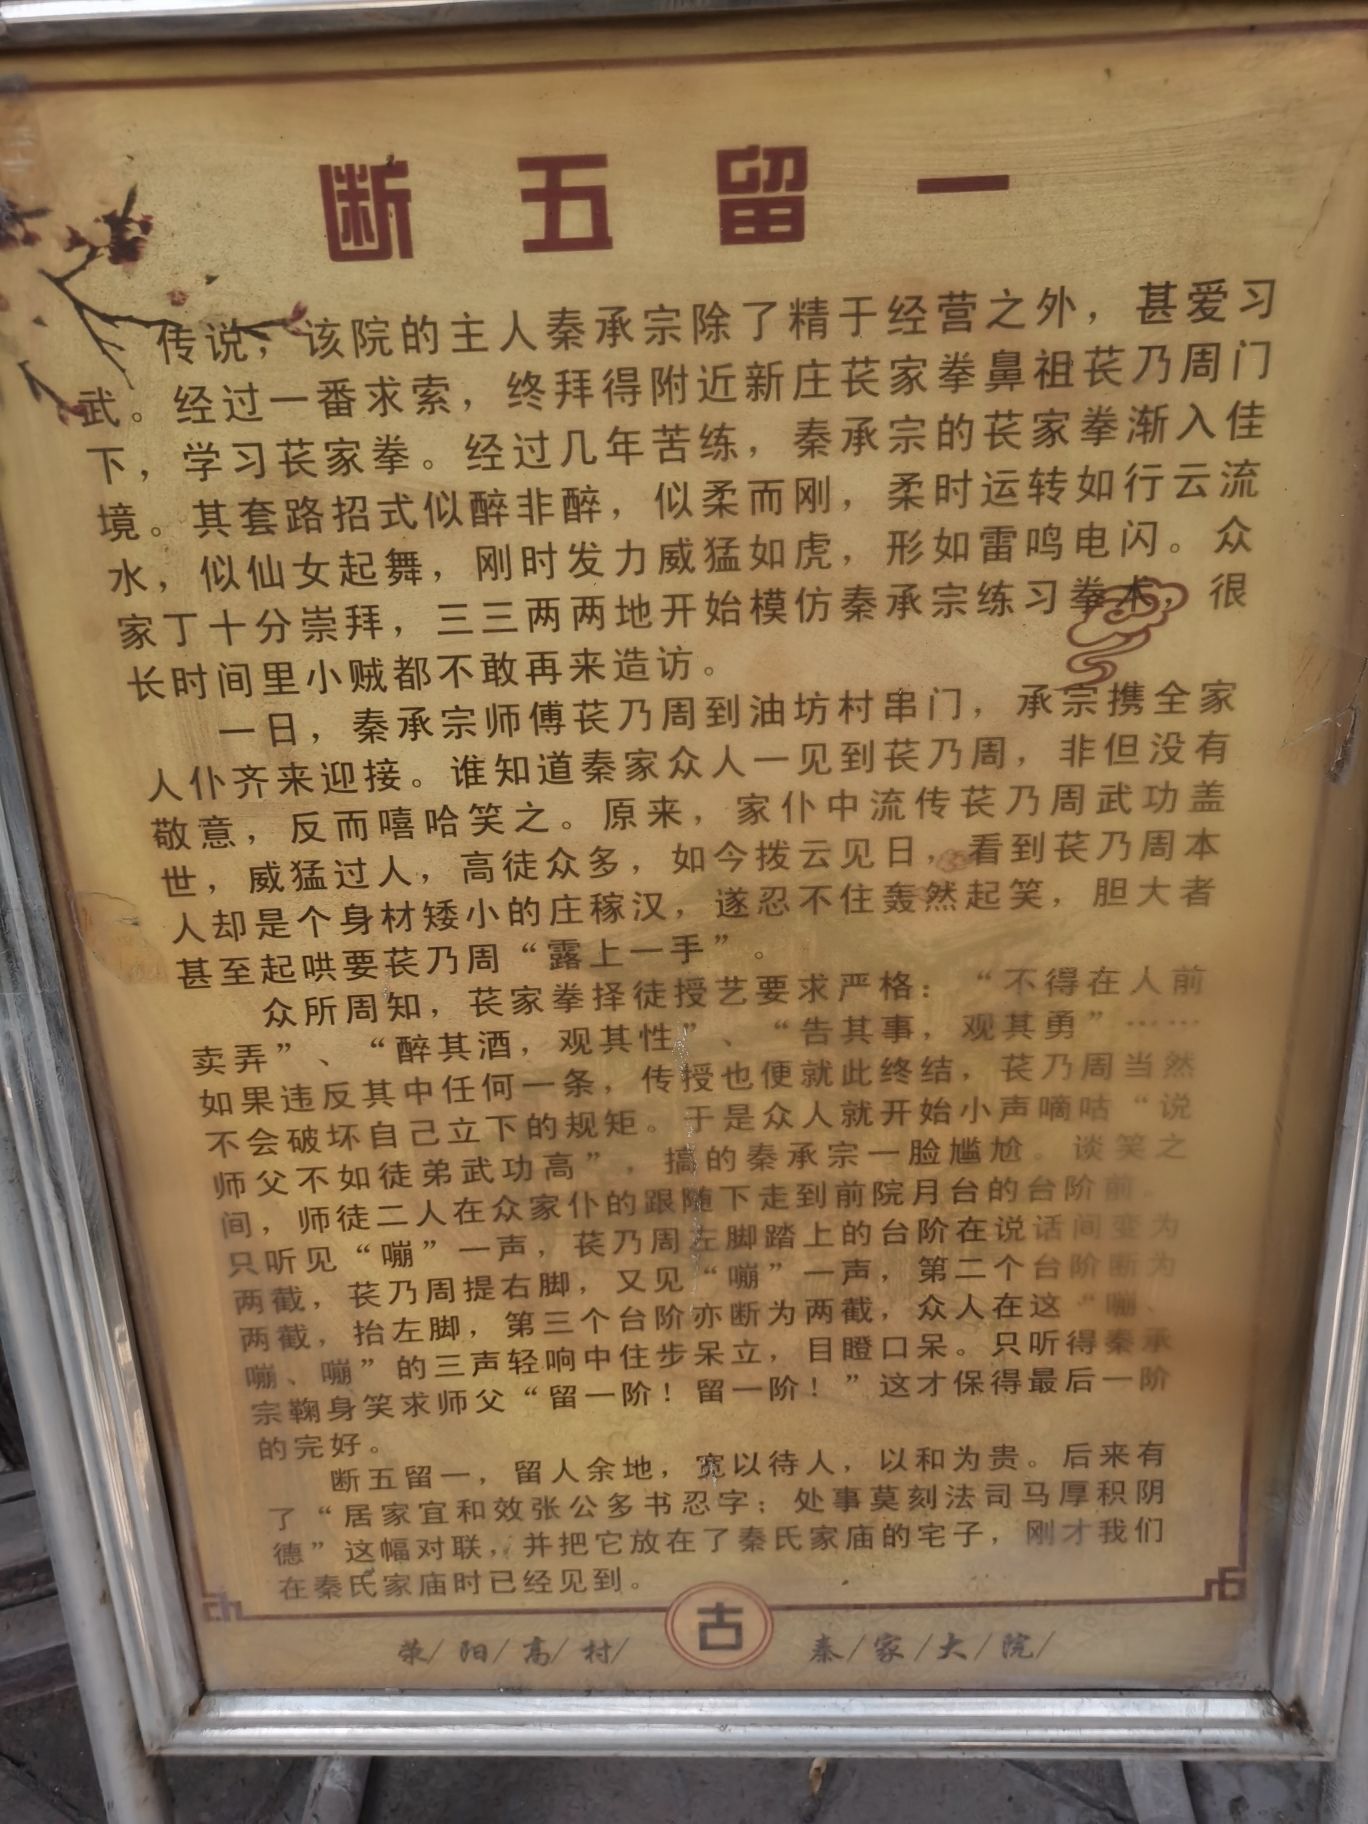 断五留一
传说，该院的主人秦承宗除了精于经营之外，甚爱习
武。经过一番求索，终拜得附近新庄苌家拳鼻祖苌乃周门
下，学习苌家拳。经过几年苦练，秦承宗的苌家拳渐入佳
境。其套路招式似醉非醉，似柔而刚，柔时运转如行云流
水，似仙女起舞，刚时发力威猛如虎，形如雷鸣电闪。众
家丁十分崇拜，三三两两地开始模仿秦承宗练习拳术，很
长时间里小贼都不敢再来造访。
一日，秦承宗师傅苌乃周到油坊村串门，承宗携全家
人仆齐来迎接。谁知道秦家众人一见到苌乃周，非但没有
敬意，反而嘻哈笑之。原来，家仆中流传苌乃周武功盖
世，威猛过人，高徒众多，如今拨云见日，看到苌乃周本
人却是个身材矮小的庄稼汉，遂忍不住轰然起笑，胆大者
甚至起哄要苌乃周“露上一手”。
众所周知，苌家拳择徒授艺要求严格：“不得在人前
卖弄”、“醉其酒，观其性”、“告其事，观其勇”……
如果违反其中任何一条，传授也便就此终结，苌乃周当然
不会破坏自己立下的规矩。于是众人就开始小声嘀咕“说
师父不如徒弟武功高”，搞的秦承宗一脸尴尬。谈笑之
间，师徒二人在众家仆的跟随下走到前院月台的台阶前。
只听见“嘣”一声，苌乃周左脚踏上的台阶在说话间变为
两截，苌乃周提右脚，又见“嘣”一声，第二个台阶断为
两截，抬左脚，第三个台阶亦断为两截，众人在这“嘣、
嘣、嘣”的三声轻响中住步呆立，目瞪口呆。只听得秦承
宗鞠身笑求师父“留一阶！留一阶！”这才保得最后一阶
的完好。
断五留一，留人余地，宽以待人，以和为贵。后来有
了“居家宜和效张公多书忍字；处事莫刻法司马厚积阴
德”这幅对联，并把它放在了秦氏家庙的宅子，刚才我们
在秦氏家庙时已经见到。
荥/阳/高/村/ 古 秦/家/大/院/